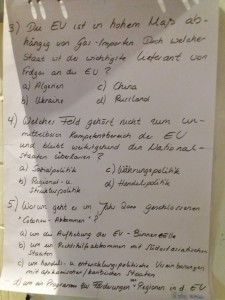 3) Die EU ist in hohem Maß ab-
hängig von Gas-Importen. Doch welcher
Staat ist der wichtigste Lieferant von
Erdgas an die EU?
a) Algerien c) China
b) Ukraine d) Russland
4) Welches Feld gehört nicht zum un-
mittelbaren Kompetenzbereich der EU
und bleibt weitgehend den National-
staaten überlassen?
a) Sozialpolitik c) Währungspolitik
b) Regional- u. d) Handelspolitik
Strukturpolitik
5) Worum geht es im Jahr 2000 geschlossenen
"Cotonou-Abkommen"?
a) um die Aufhebung der EU-Binnenzölle
b) um ein Freihandelsabkommen mit südostasiatischen
Staaten
c) um handels- u. entwicklungspolitische Vereinbarungen
mit afrikanischen/karibischen Staaten
d) um ein Programm der Förderungen Regionen in d. EU